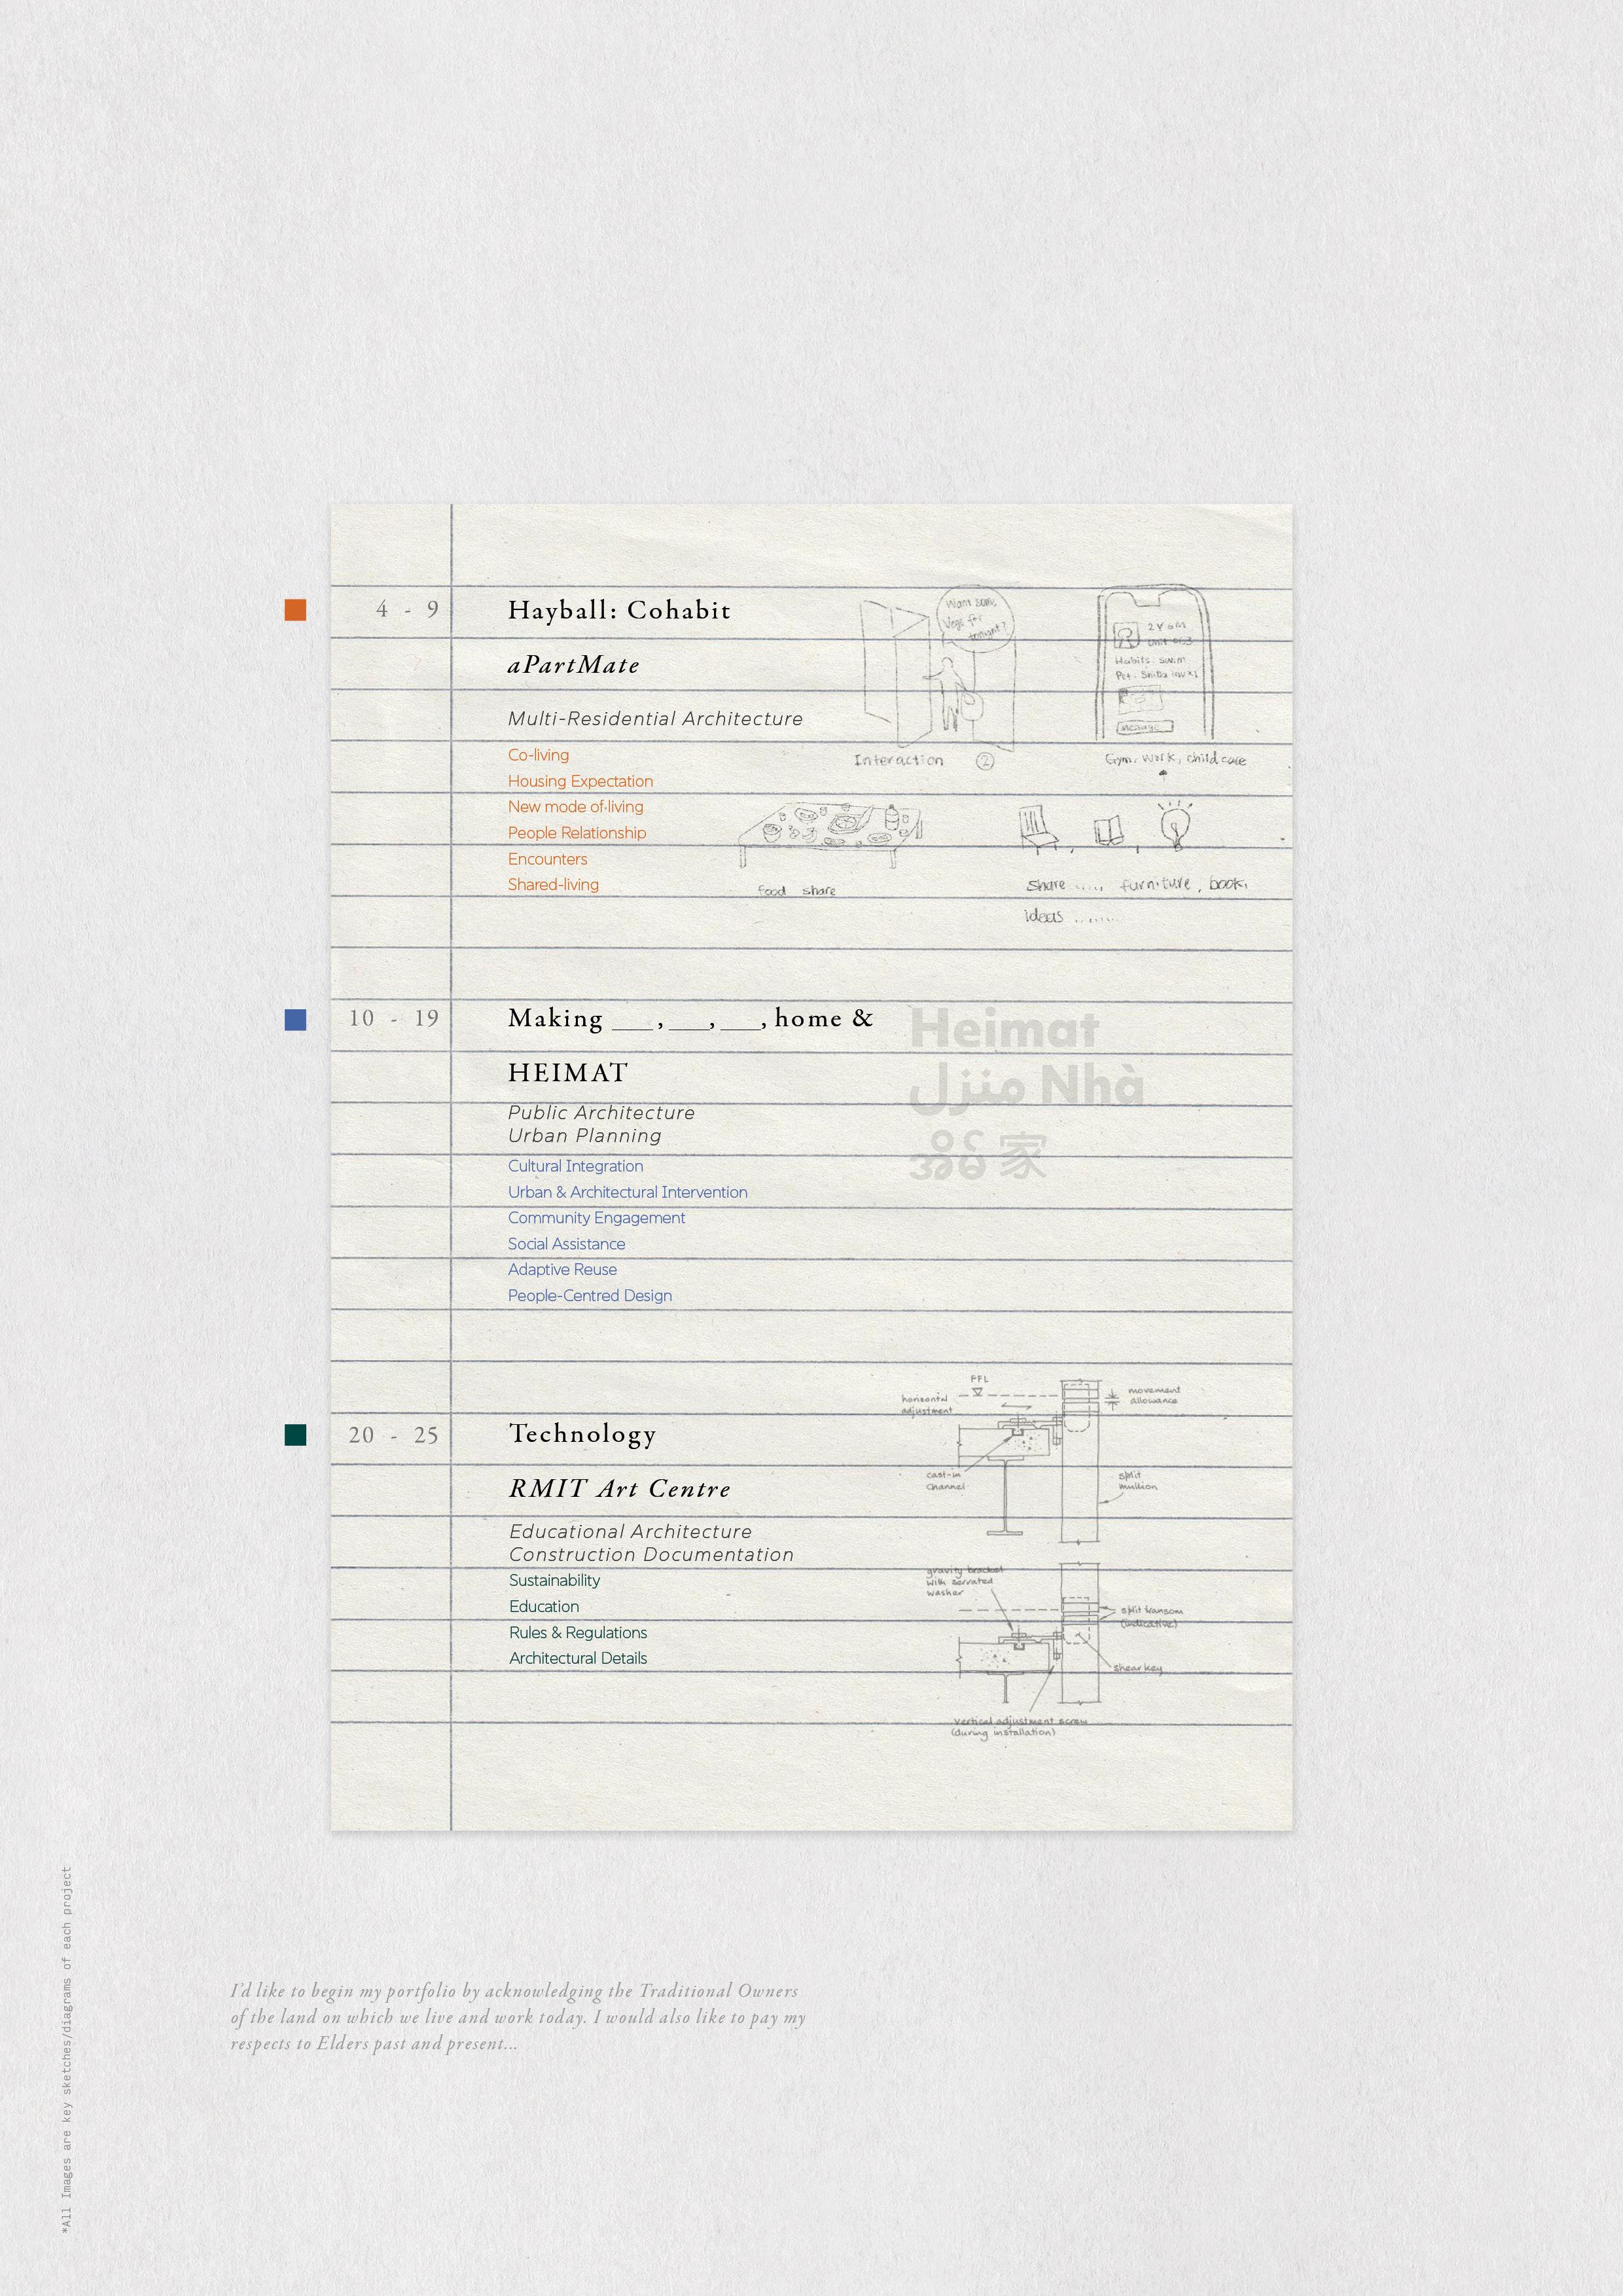 4 - 9
Hayball: Cohabit
aPartMate
Multi-Residential Architecture
Co-living
Housing Expectation
New mode of living
People Relationship
Encounters
Shared-living
Want some
Vege for
tonight?
Interaction ②
2Y old
Habits: swim
Message
Gym, work, child care
food share
Share ..... furniture, book,
ideas .......
10 - 19
Making ___, ___, ___, home &
HEIMAT
Public Architecture
Urban Planning
Cultural Integration
Urban & Architectural Intervention
Community Engagement
Social Assistance
Adaptive Reuse
People-Centred Design
Heimat
منزل Nhà
家
20 - 25
Technology
RMIT Art Centre
Educational Architecture
Construction Documentation
Sustainability
Education
Rules & Regulations
Architectural Details
FFL
horizontal
adjustment
movement
allowance
cast-in
channel
split
mullion
gravity bracket
with serrated
washer
split transom
(indicative)
shear key
vertical adjustment screw
(during installation)
I'd like to begin my portfolio by acknowledging the Traditional Owners
of the land on which we live and work today. I would also like to pay my
respects to Elders past and present...
*All Images are key sketches/diagrams of each project